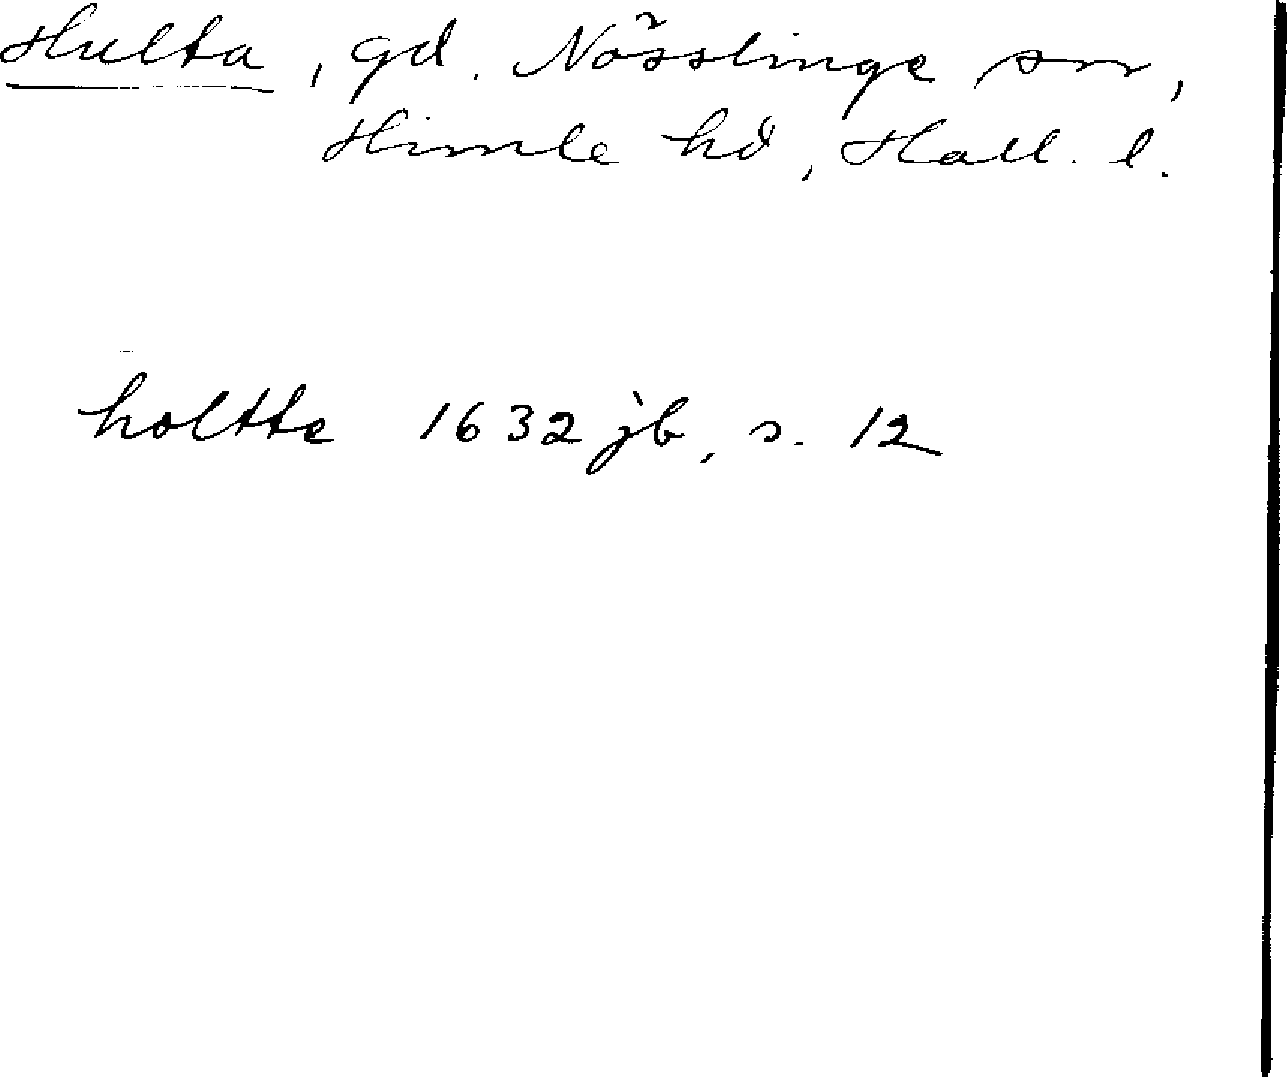 Hulta, gd. Nösslinge sn,
Himle hd, Hall. l.
holtte 1632 jb, s. 12